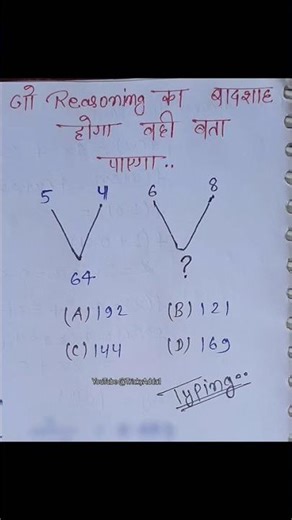 जो Reasoning का बादशाह
होगा वही बता
पाएगा..
5 4 6 8
64 ?
(A) 192 (B) 121
(C) 144 (D) 169
YouTube @TrickyAdda1
Typing..